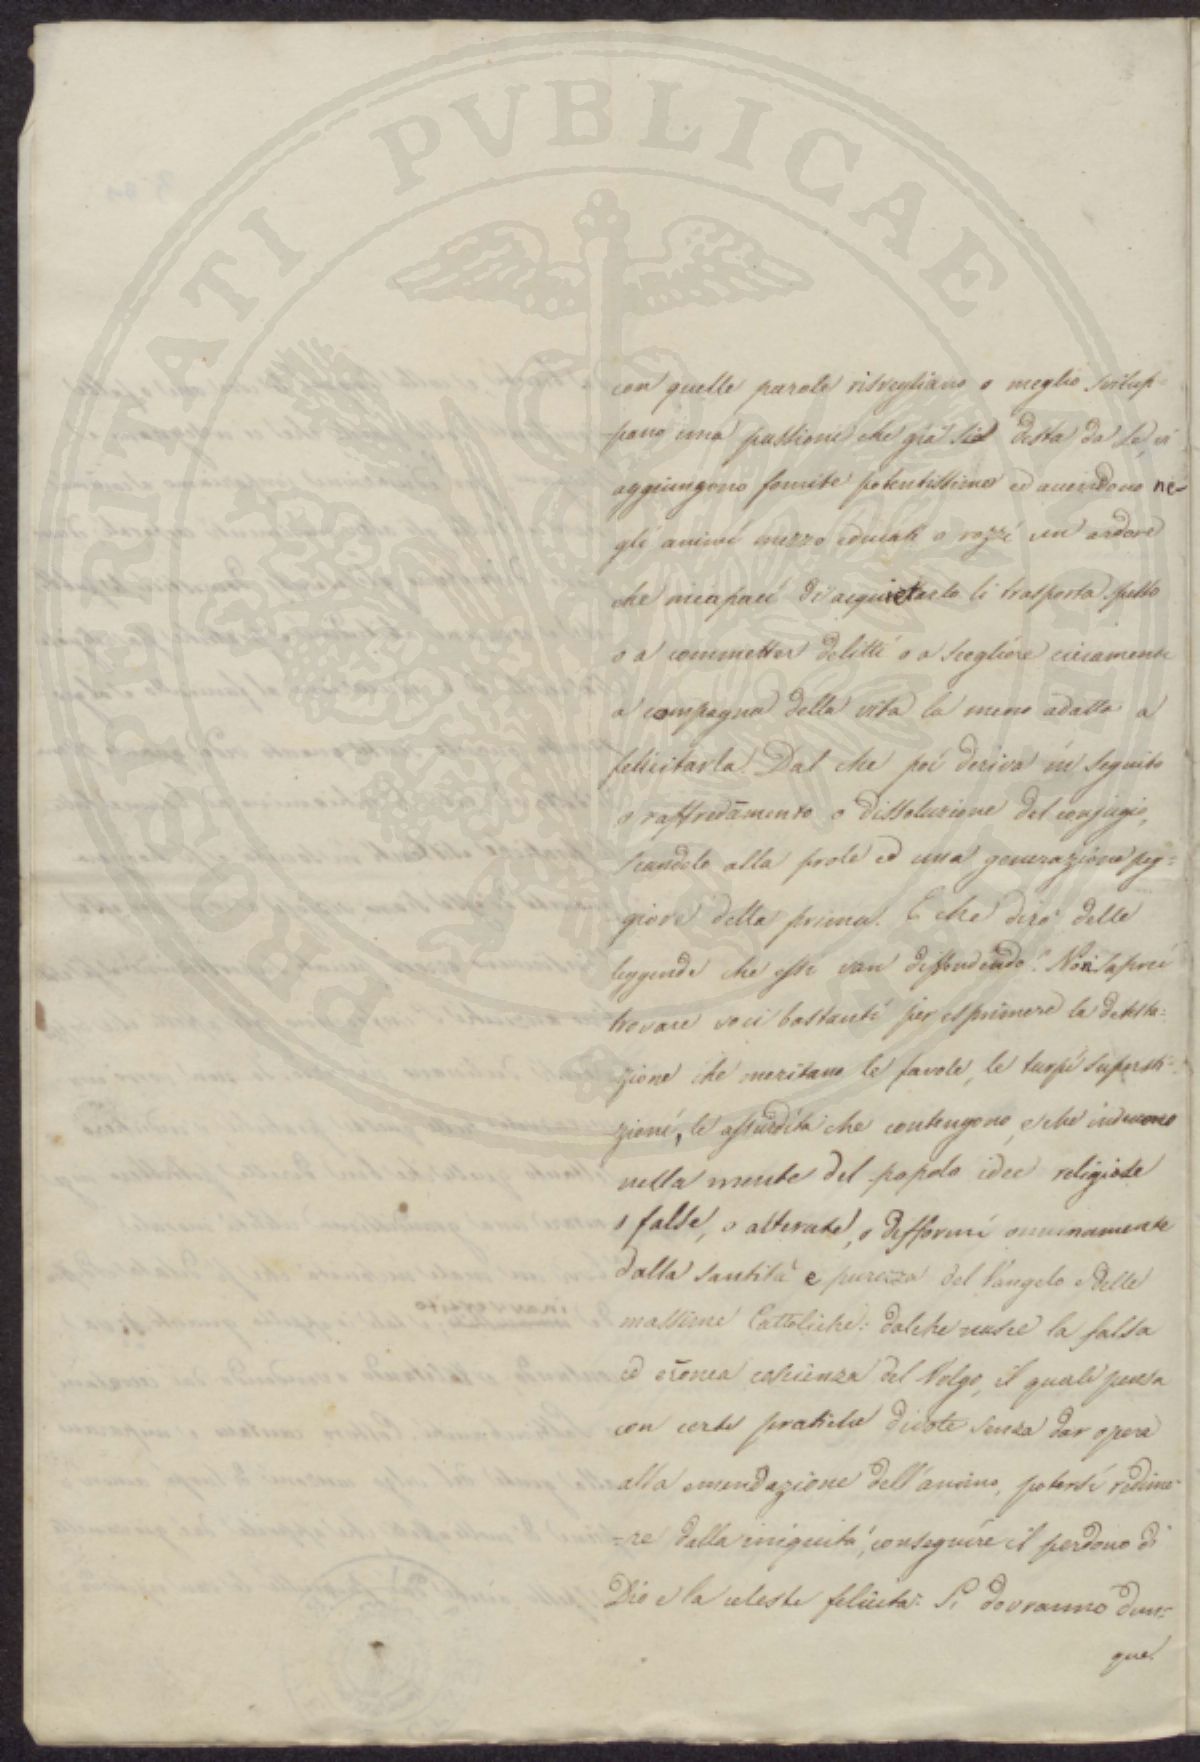 PROSPERITATI PVBLICAE
con quelle parole risvegliano o meglio svilup=
pano una passione che già sia desta da se, vi
aggiungono fomite potentissimo ed accendono ne-
gli animi mezzo educati o rozzi un ardore
che incapaci di acquietarlo li trasporta spesso
o a commetter delitti o a scegliere ciecamente
a compagna della vita la meno adatta a
felicitarla. Dal che poi deriva in seguito
o raffredamento o dissoluzione del conjugio,
scandolo alla prole ed una generazione peg=
giore della prima. E che dirò delle
leggende che essi van diffondendo? Non saprei
trovare voci bastanti per esprimere la detesta=
zione che meritano le favole, le turpi supersti=
zioni, le assurdità che contengono, e che inducono
nella mente del popolo idee religiose
o false, o alterate, o difformi onninamente
dalla santità e purezza del Vangelo e delle
massime Cattoliche: dal che nasce la falsa
ed eronea coscienza del Volgo, il quale pensa
con certe pratiche divote senza dar opera
alla emendazione dell'animo, potersi redime=
=re dalla iniquità, conseguire il perdono di
Dio e la celeste felicità. Si dovranno dun=
que